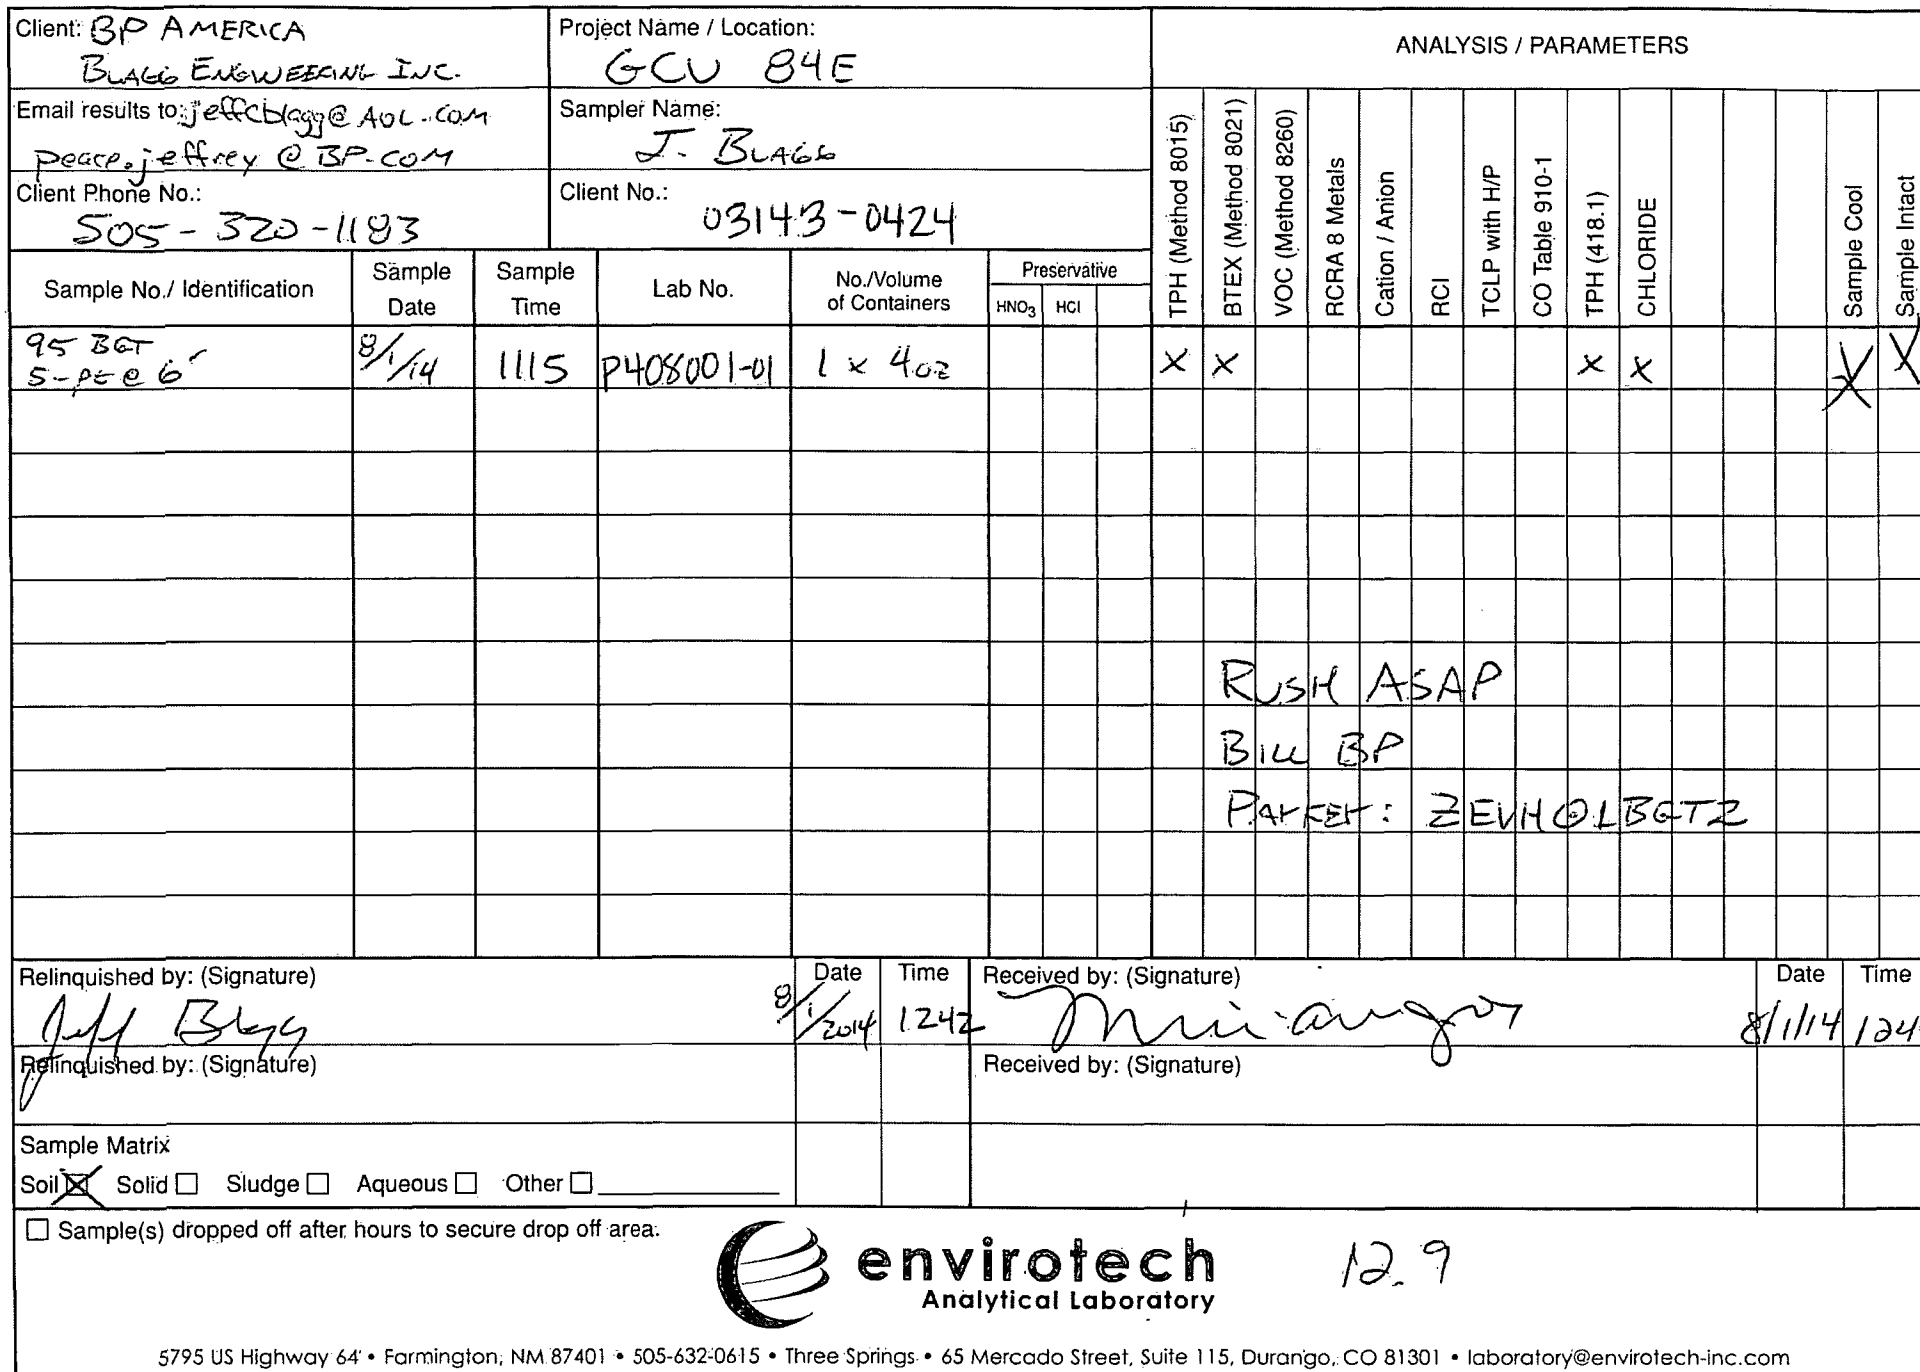 Client: BP AMERICA
BLAGG ENGINEERING INC.
Project Name / Location:
GCU 84E
ANALYSIS / PARAMETERS
Email results to: jeffcblagg@AOL.COM
peace.jeffrey@BP.COM
Sampler Name:
J. BLAGG
Client Phone No.:
505-320-1183
Client No.:
03143-0424
Sample No./ Identification
Sample Date
Sample Time
Lab No.
No./Volume of Containers
Preservative
HNO3 HCl
TPH (Method 8015)
BTEX (Method 8021)
VOC (Method 8260)
RCRA 8 Metals
Cation / Anion
RCI
TCLP with H/P
CO Table 910-1
TPH (418.1)
CHLORIDE
Sample Cool
Sample Intact
95 BGT
5-pt @ 6'
8/1/14 1115 P408001-01 1 x 4oz X X X X X X
RUSH ASAP
BILL BP
ZEVHOLBGTZ
Relinquished by: (Signature)
Date
Time
Received by: (Signature)
Date
Time
Jeff Blagg
8/1/2014 1242
8/1/14
Relinquished by: (Signature)
Received by: (Signature)
Sample Matrix
Soil X Solid Sludge Aqueous Other
Sample(s) dropped off after hours to secure drop off area.
envirotech
Analytical Laboratory
12.9
5795 US Highway 64 • Farmington, NM 87401 • 505-632-0615 • Three Springs • 65 Mercado Street, Suite 115, Durango, CO 81301 • laboratory@envirotech-inc.com